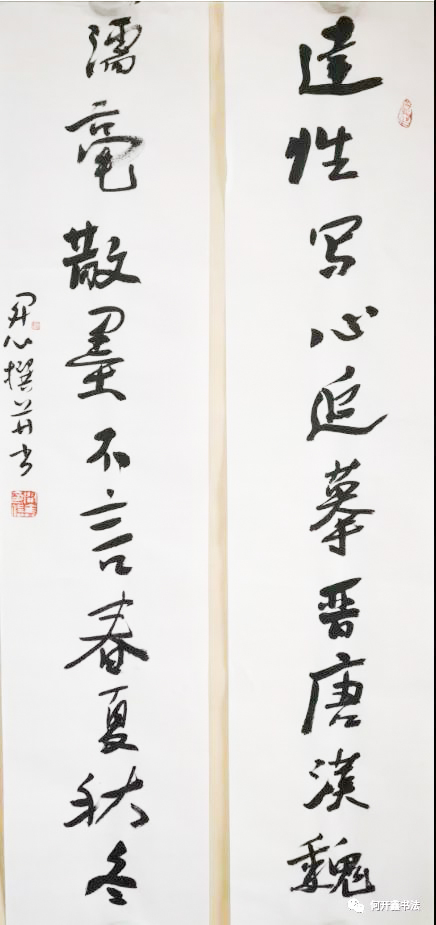 達性写心追摹晋唐漢魏
濡毫散墨不言春夏秋冬
開心撰并书
何开鑫书法